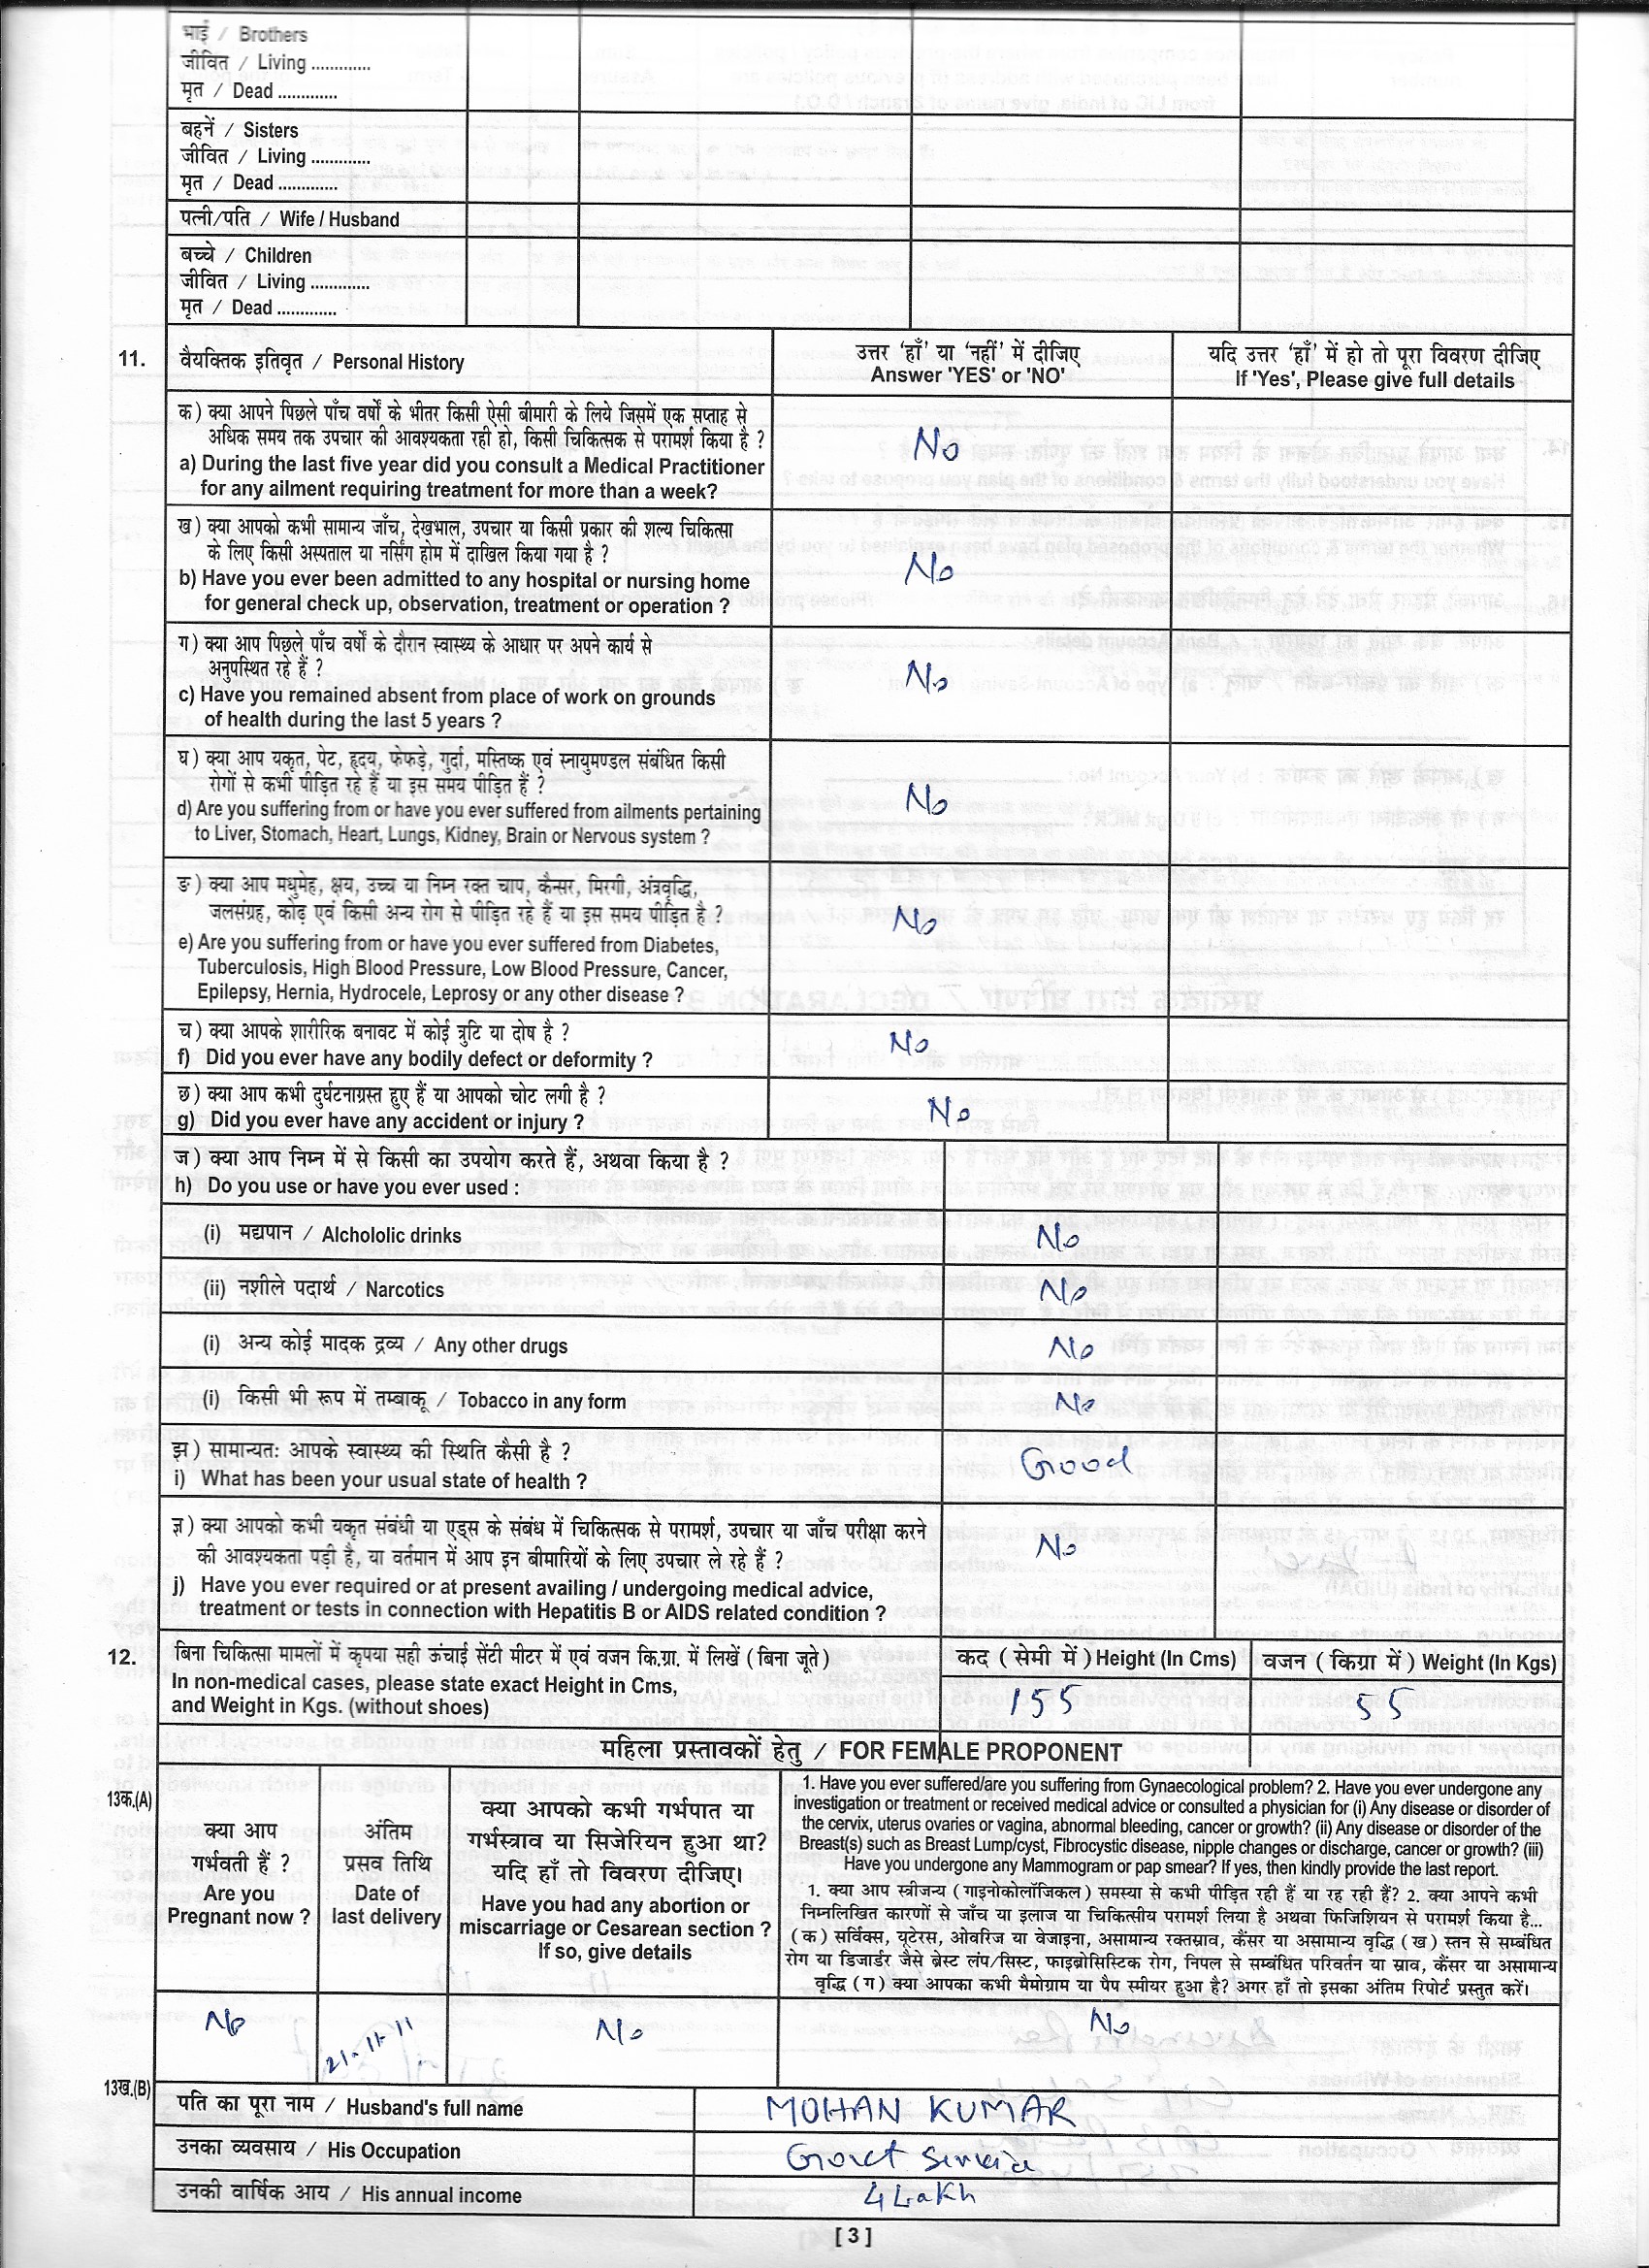 भाई / Brothers
जीवित / Living .............
मृत / Dead .............
बहनें / Sisters
जीवित / Living .............
मृत / Dead .............
पत्नी/पति / Wife / Husband
बच्चे / Children
जीवित / Living .............
मृत / Dead .............
11. वैयक्तिक इतिवृत / Personal History
उत्तर 'हाँ' या 'नहीं' में दीजिए
Answer 'YES' or 'NO'
यदि उत्तर 'हाँ' में हो तो पूरा विवरण दीजिए
If 'Yes', Please give full details
क) क्या आपने पिछले पाँच वर्षों के भीतर किसी ऐसी बीमारी के लिये जिसमें एक सप्ताह से
अधिक समय तक उपचार की आवश्यकता रही हो, किसी चिकित्सक से परामर्श किया है ?
a) During the last five year did you consult a Medical Practitioner
for any ailment requiring treatment for more than a week?
No
ख) क्या आपको कभी सामान्य जाँच, देखभाल, उपचार या किसी प्रकार की शल्य चिकित्सा
के लिए किसी अस्पताल या नर्सिंग होम में दाखिल किया गया है ?
b) Have you ever been admitted to any hospital or nursing home
for general check up, observation, treatment or operation ?
No
ग) क्या आप पिछले पाँच वर्षों के दौरान स्वास्थ्य के आधार पर अपने कार्य से
अनुपस्थित रहे हैं ?
c) Have you remained absent from place of work on grounds
of health during the last 5 years ?
No
घ) क्या आप यकृत, पेट, हृदय, फेफड़े, गुर्दा, मस्तिष्क एवं स्नायुमण्डल संबंधित किसी
रोगों से कभी पीड़ित रहे हैं या इस समय पीड़ित हैं ?
d) Are you suffering from or have you ever suffered from ailments pertaining
to Liver, Stomach, Heart, Lungs, Kidney, Brain or Nervous system ?
No
ङ) क्या आप मधुमेह, क्षय, उच्च या निम्न रक्त चाप, कैन्सर, मिरगी, अंत्रवृद्धि,
जलसंग्रह, कोढ़ एवं किसी अन्य रोग से पीड़ित रहे हैं या इस समय पीड़ित है ?
e) Are you suffering from or have you ever suffered from Diabetes,
Tuberculosis, High Blood Pressure, Low Blood Pressure, Cancer,
Epilepsy, Hernia, Hydrocele, Leprosy or any other disease ?
No
च) क्या आपके शारीरिक बनावट में कोई त्रुटि या दोष है ?
f) Did you ever have any bodily defect or deformity ?
No
छ) क्या आप कभी दुर्घटनाग्रस्त हुए हैं या आपको चोट लगी है ?
g) Did you ever have any accident or injury ?
No
ज) क्या आप निम्न में से किसी का उपयोग करते हैं, अथवा किया है ?
h) Do you use or have you ever used :
(i) मद्यपान / Alchololic drinks
No
(ii) नशीले पदार्थ / Narcotics
No
(i) अन्य कोई मादक द्रव्य / Any other drugs
No
(i) किसी भी रूप में तम्बाकू / Tobacco in any form
No
झ) सामान्यतः आपके स्वास्थ्य की स्थिति कैसी है ?
i) What has been your usual state of health ?
Good
ञ) क्या आपको कभी यकृत संबंधी या एड्स के संबंध में चिकित्सक से परामर्श, उपचार या जाँच परीक्षा करने
की आवश्यकता पड़ी है, या वर्तमान में आप इन बीमारियों के लिए उपचार ले रहे हैं ?
j) Have you ever required or at present availing / undergoing medical advice,
treatment or tests in connection with Hepatitis B or AIDS related condition ?
No
12. बिना चिकित्सा मामलों में कृपया सही ऊंचाई सेंटी मीटर में एवं वजन कि.ग्रा. में लिखें (बिना जूते)
In non-medical cases, please state exact Height in Cms,
and Weight in Kgs. (without shoes)
कद (सेमी में) Height (In Cms)
वजन (किग्रा में) Weight (In Kgs)
155
55
महिला प्रस्तावकों हेतु / FOR FEMALE PROPONENT
13क.(A)
क्या आप
गर्भवती हैं ?
Are you
Pregnant now ?
अंतिम
प्रसव तिथि
Date of
last delivery
क्या आपको कभी गर्भपात या
गर्भस्त्राव या सिजेरियन हुआ था?
यदि हाँ तो विवरण दीजिए।
Have you had any abortion or
miscarriage or Cesarean section ?
If so, give details
1. Have you ever suffered/are you suffering from Gynaecological problem? 2. Have you ever undergone any
investigation or treatment or received medical advice or consulted a physician for (i) Any disease or disorder of
the cervix, uterus ovaries or vagina, abnormal bleeding, cancer or growth? (ii) Any disease or disorder of the
Breast(s) such as Breast Lump/cyst, Fibrocystic disease, nipple changes or discharge, cancer or growth? (iii)
Have you undergone any Mammogram or pap smear? If yes, then kindly provide the last report.
1. क्या आप स्त्रीजन्य (गाइनोकोलॉजिकल) समस्या से कभी पीड़ित रही हैं या रह रही हैं? 2. क्या आपने कभी
निम्नलिखित कारणों से जाँच या इलाज या चिकित्सीय परामर्श लिया है अथवा फिजिशियन से परामर्श किया है...
(क) सर्विक्स, यूटेरस, ओवरिज या वेजाइना, असामान्य रक्तस्राव, कैंसर या असामान्य वृद्धि (ख) स्तन से सम्बंधित
रोग या डिजार्डर जैसे ब्रेस्ट लंप/सिस्ट, फाइब्रोसिस्टिक रोग, निपल से सम्बंधित परिवर्तन या स्राव, कैंसर या असामान्य
वृद्धि (ग) क्या आपका कभी मैमोग्राम या पैप स्मीयर हुआ है? अगर हाँ तो इसका अंतिम रिपोर्ट प्रस्तुत करें।
No
21-11-11
No
No
13ख.(B)
पति का पूरा नाम / Husband's full name
MOHAN KUMAR
उनका व्यवसाय / His Occupation
Govt Service
उनकी वार्षिक आय / His annual income
4 Lakh
[ 3 ]